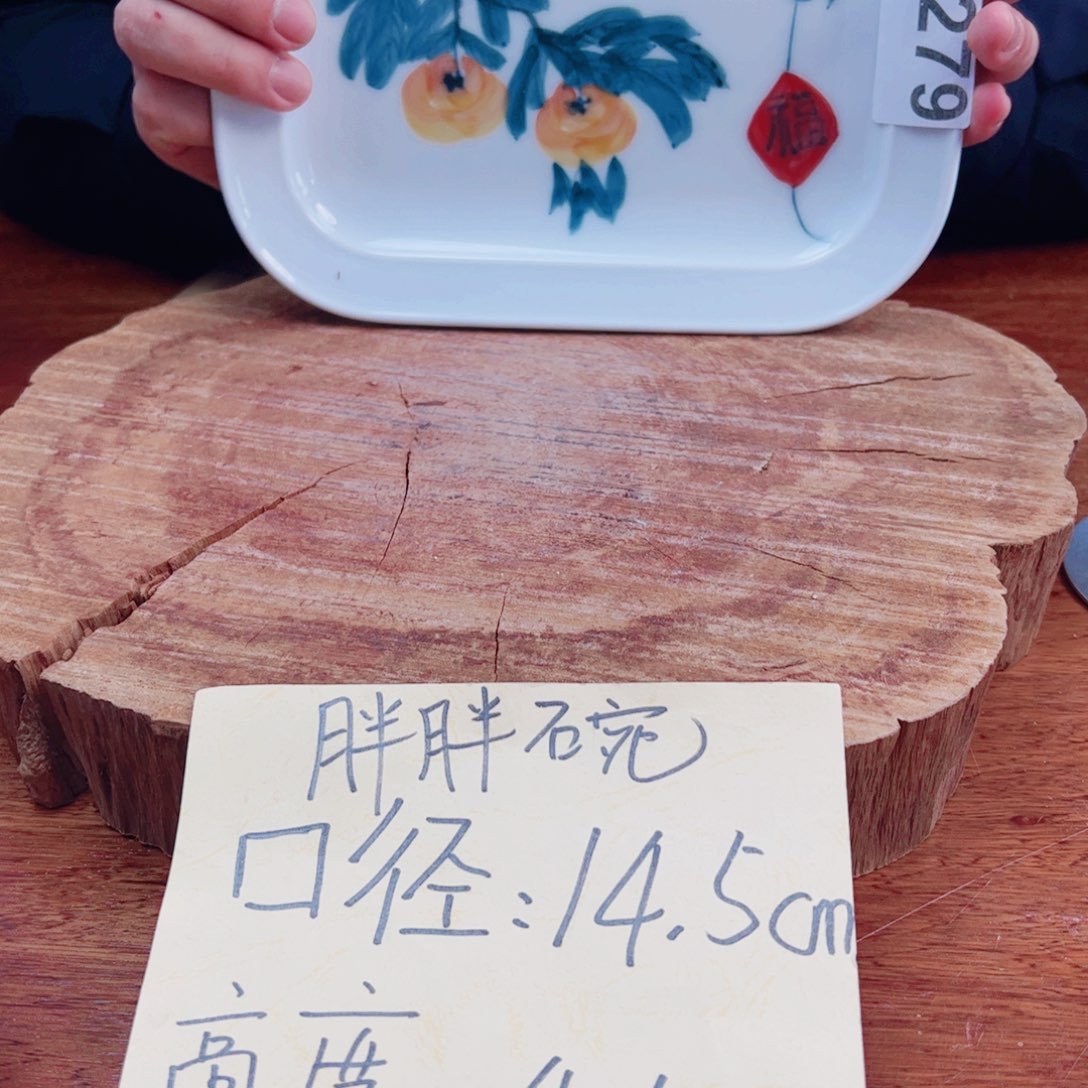 279
福
胖胖碗
口径:14.5cm
高度